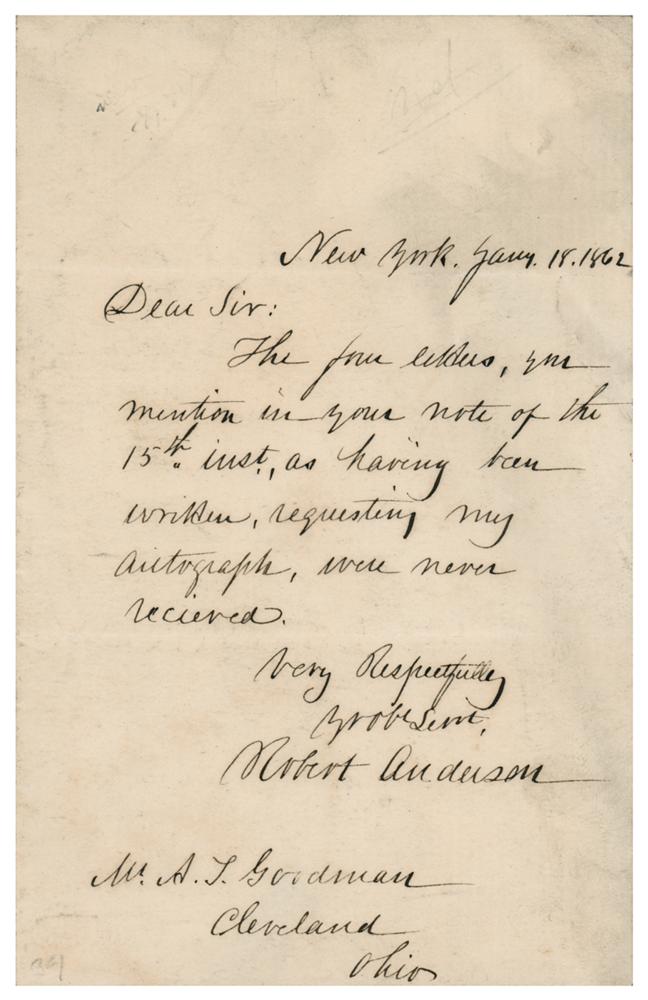 New York. Jany. 18. 1862
Dear Sir:
The four letters, you
mention in your note of the
15th inst., as having been
written, requesting my
autograph, were never
recieved.
Very Respectfully
Yr obt Servt,
Robert Anderson
Mr. A. T. Goodman
Cleveland
Ohio